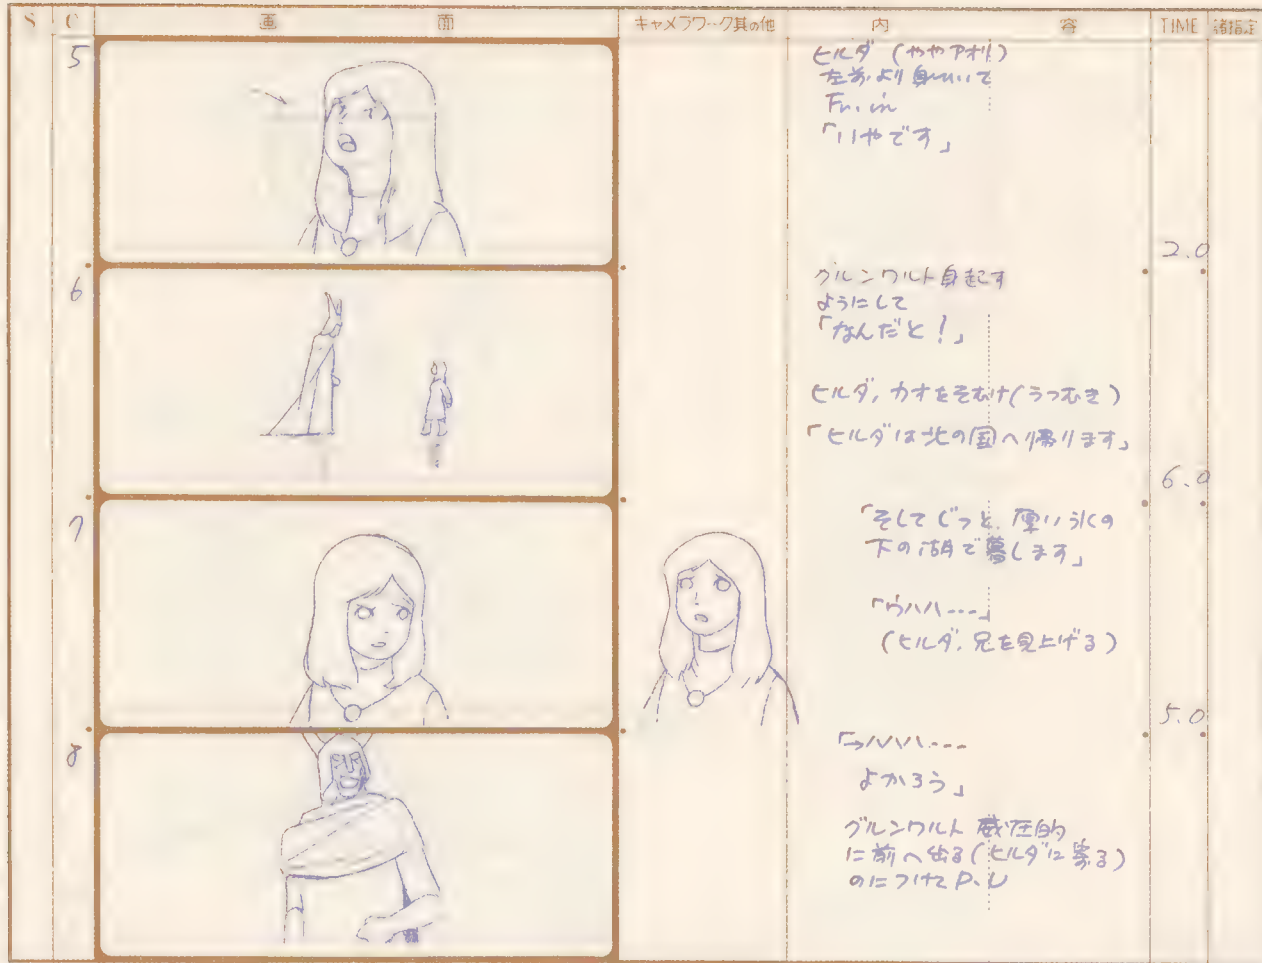 S C 画 面 キャメラワーク其の他 内 容 TIME 諸指定
5
ヒルダ (ややアオリ)
左前より身ひいて
Fr. in
「いやです」
2.0
6
グルンワルト身起す
ようにして
「なんだと!」
ヒルダ、カオをそむけ(うつむき)
「ヒルダは北の国へ帰ります」
6.0
7
「そしてじっと、厚い氷の
下の湖で暮します」
「ウハハ---」
(ヒルダ、兄を見上げる)
5.0
8
「→ハハハ---
よかろう」
グルンワルト 威圧的
に前へ出る(ヒルダに寄る)
のにつけてP.U